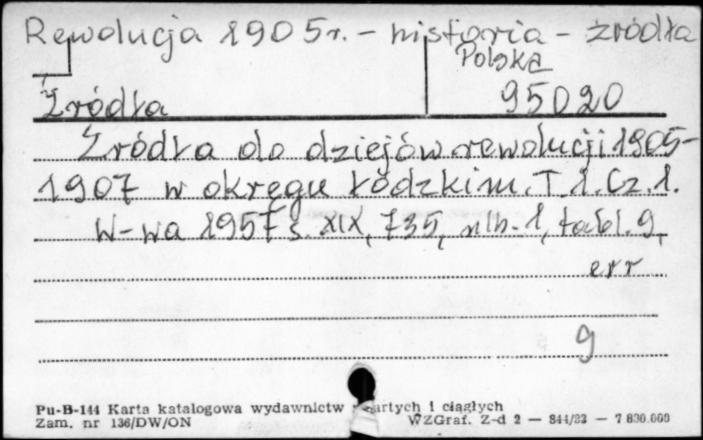 Rewolucja 1905r. - historia - źródła
Polska
Źródła 95020
Źródła do dziejów rewolucji 1905-
1907 w okręgu łódzkim. T 1. Cz. 1.
W-wa 1957 s. XIX, 735, nlb. 1, tabl. 9,
err
9
Pu-B-144 Karta katalogowa wydawnictw zwartych i ciągłych
Zam. nr 136/DW/ON WZGraf. Z-d 2 — 844/83 — 7 800.000